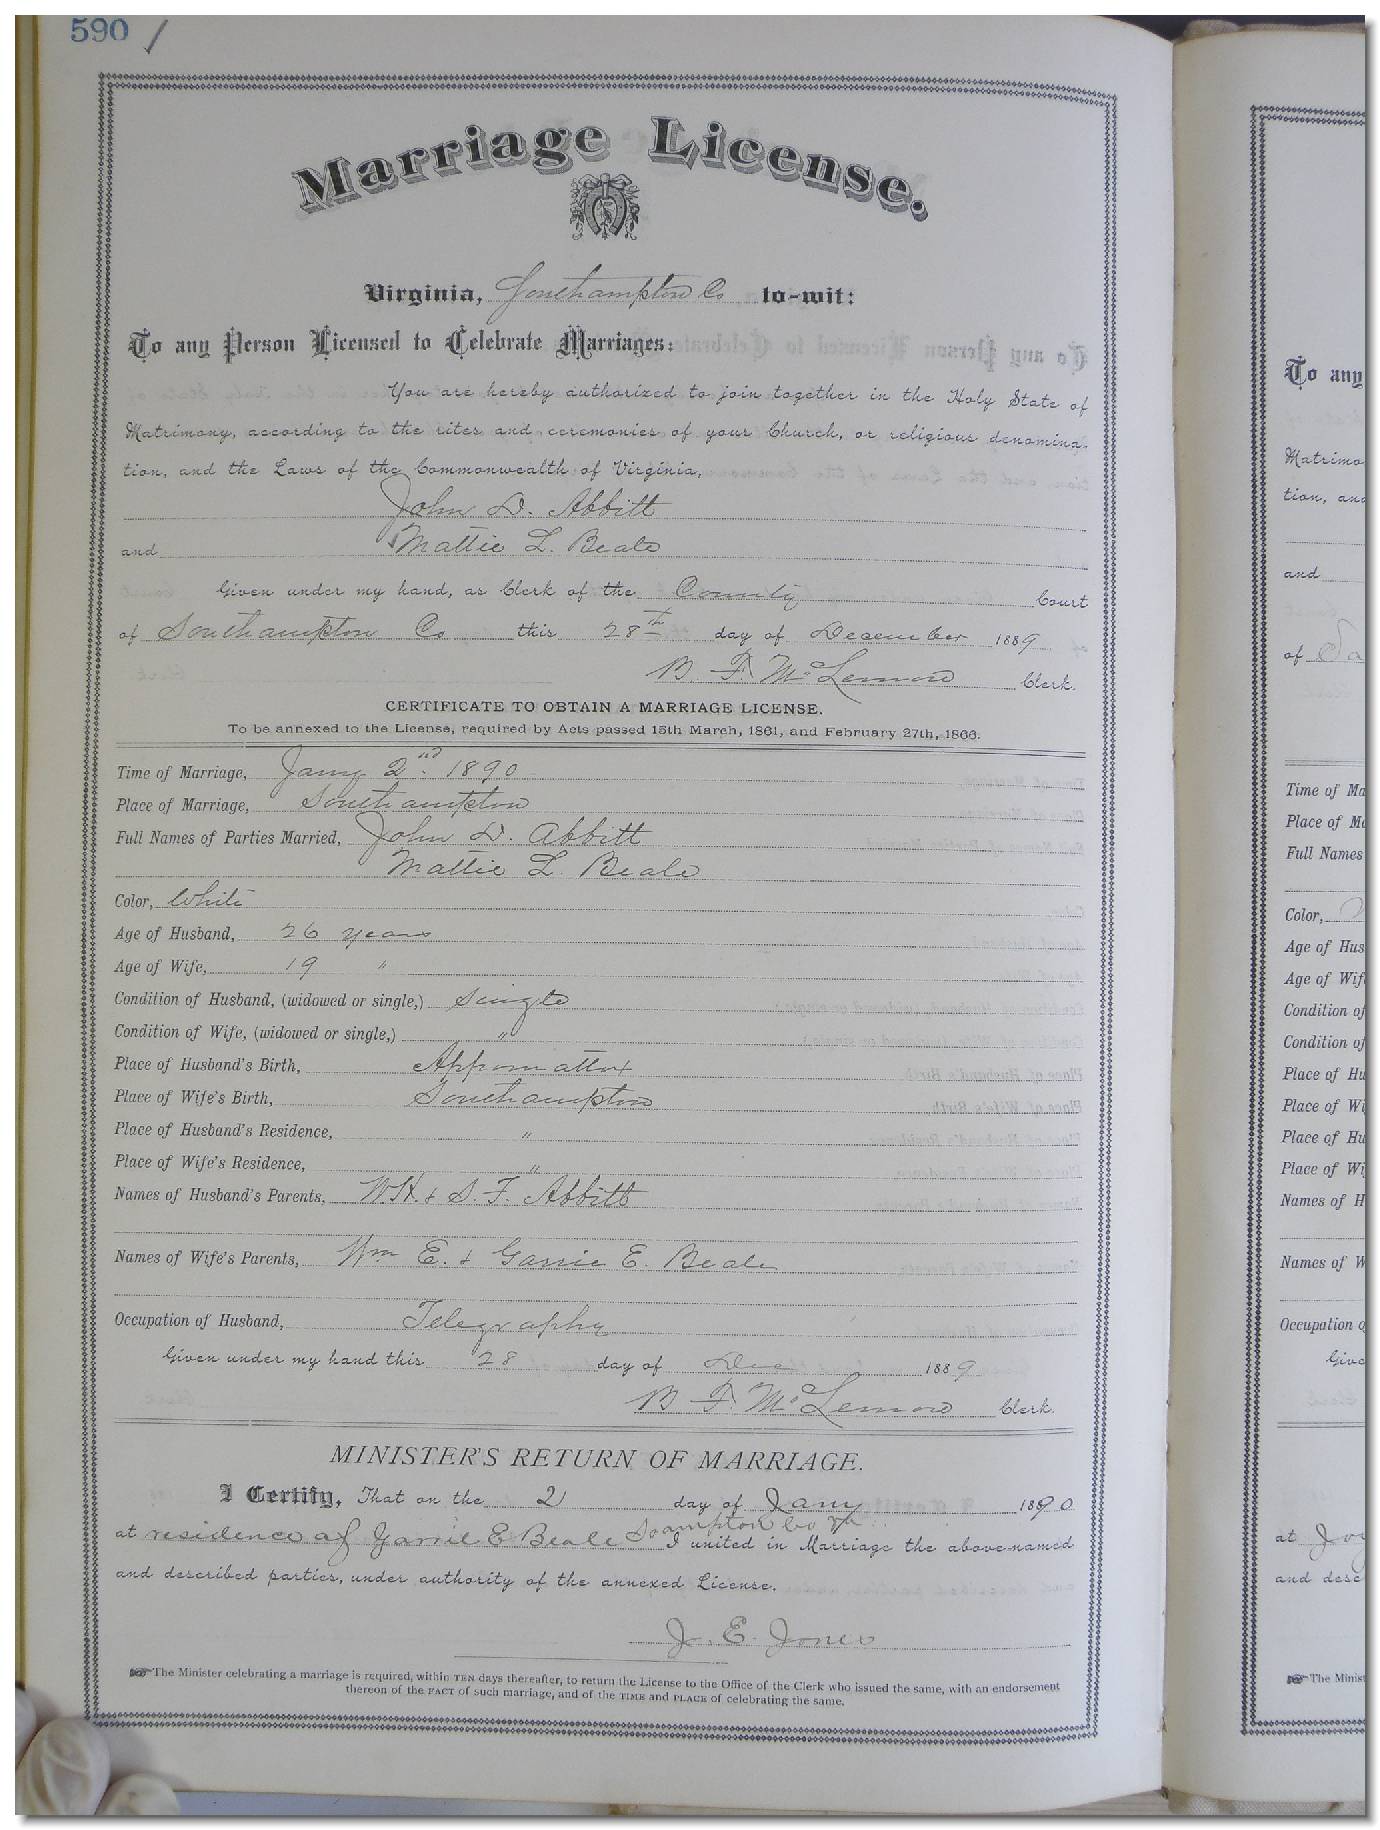 590 /
Marriage License.
Virginia, Southampton Co to-wit:
To any Person Licensed to Celebrate Marriages:
You are hereby authorized to join together in the Holy State of
Matrimony, according to the rites and ceremonies of your Church, or religious denomina-
tion, and the Laws of the Commonwealth of Virginia,
John D. Abbitt
and Mattie L. Beale
Given under my hand, as Clerk of the County Court
of Southampton Co this 28th day of December 1889
B. F. McLemore Clerk.
CERTIFICATE TO OBTAIN A MARRIAGE LICENSE.
To be annexed to the License, required by Acts passed 15th March, 1861, and February 27th, 1866.
Time of Marriage, Jany 2nd. 1890
Place of Marriage, Southampton
Full Names of Parties Married, John D. Abbitt
Mattie L. Beale
Color, White
Age of Husband, 26 years
Age of Wife, 19 "
Condition of Husband, (widowed or single,) Single
Condition of Wife, (widowed or single,) "
Place of Husband's Birth, Appomattox
Place of Wife's Birth, Southampton
Place of Husband's Residence, "
Place of Wife's Residence, "
Names of Husband's Parents, W H. & S. F. Abbitt
Names of Wife's Parents, Wm E. & Garrie E. Beale
Occupation of Husband, Telegraphy
Given under my hand this 28 day of Dec 1889
B. F. McLemore Clerk.
MINISTER'S RETURN OF MARRIAGE.
I Certify, That on the 2 day of Jany 1890
at residence of Garrie E Beale Soampton Co Va I united in Marriage the above-named
and described parties, under authority of the annexed License.
J. E. Jones
The Minister celebrating a marriage is required, within TEN days thereafter, to return the License to the Office of the Clerk who issued the same, with an endorsement
thereon of the FACT of such marriage, and of the TIME and PLACE of celebrating the same.
To any
Matrimo
tion, and
and
of
Time of Ma
Place of Ma
Full Names
Color,
Age of Hus
Age of Wif
Condition of
Condition of
Place of Hu
Place of Wi
Place of Hu
Place of Wi
Names of H
Names of W
Occupation o
Give
at
and desc
The Minist